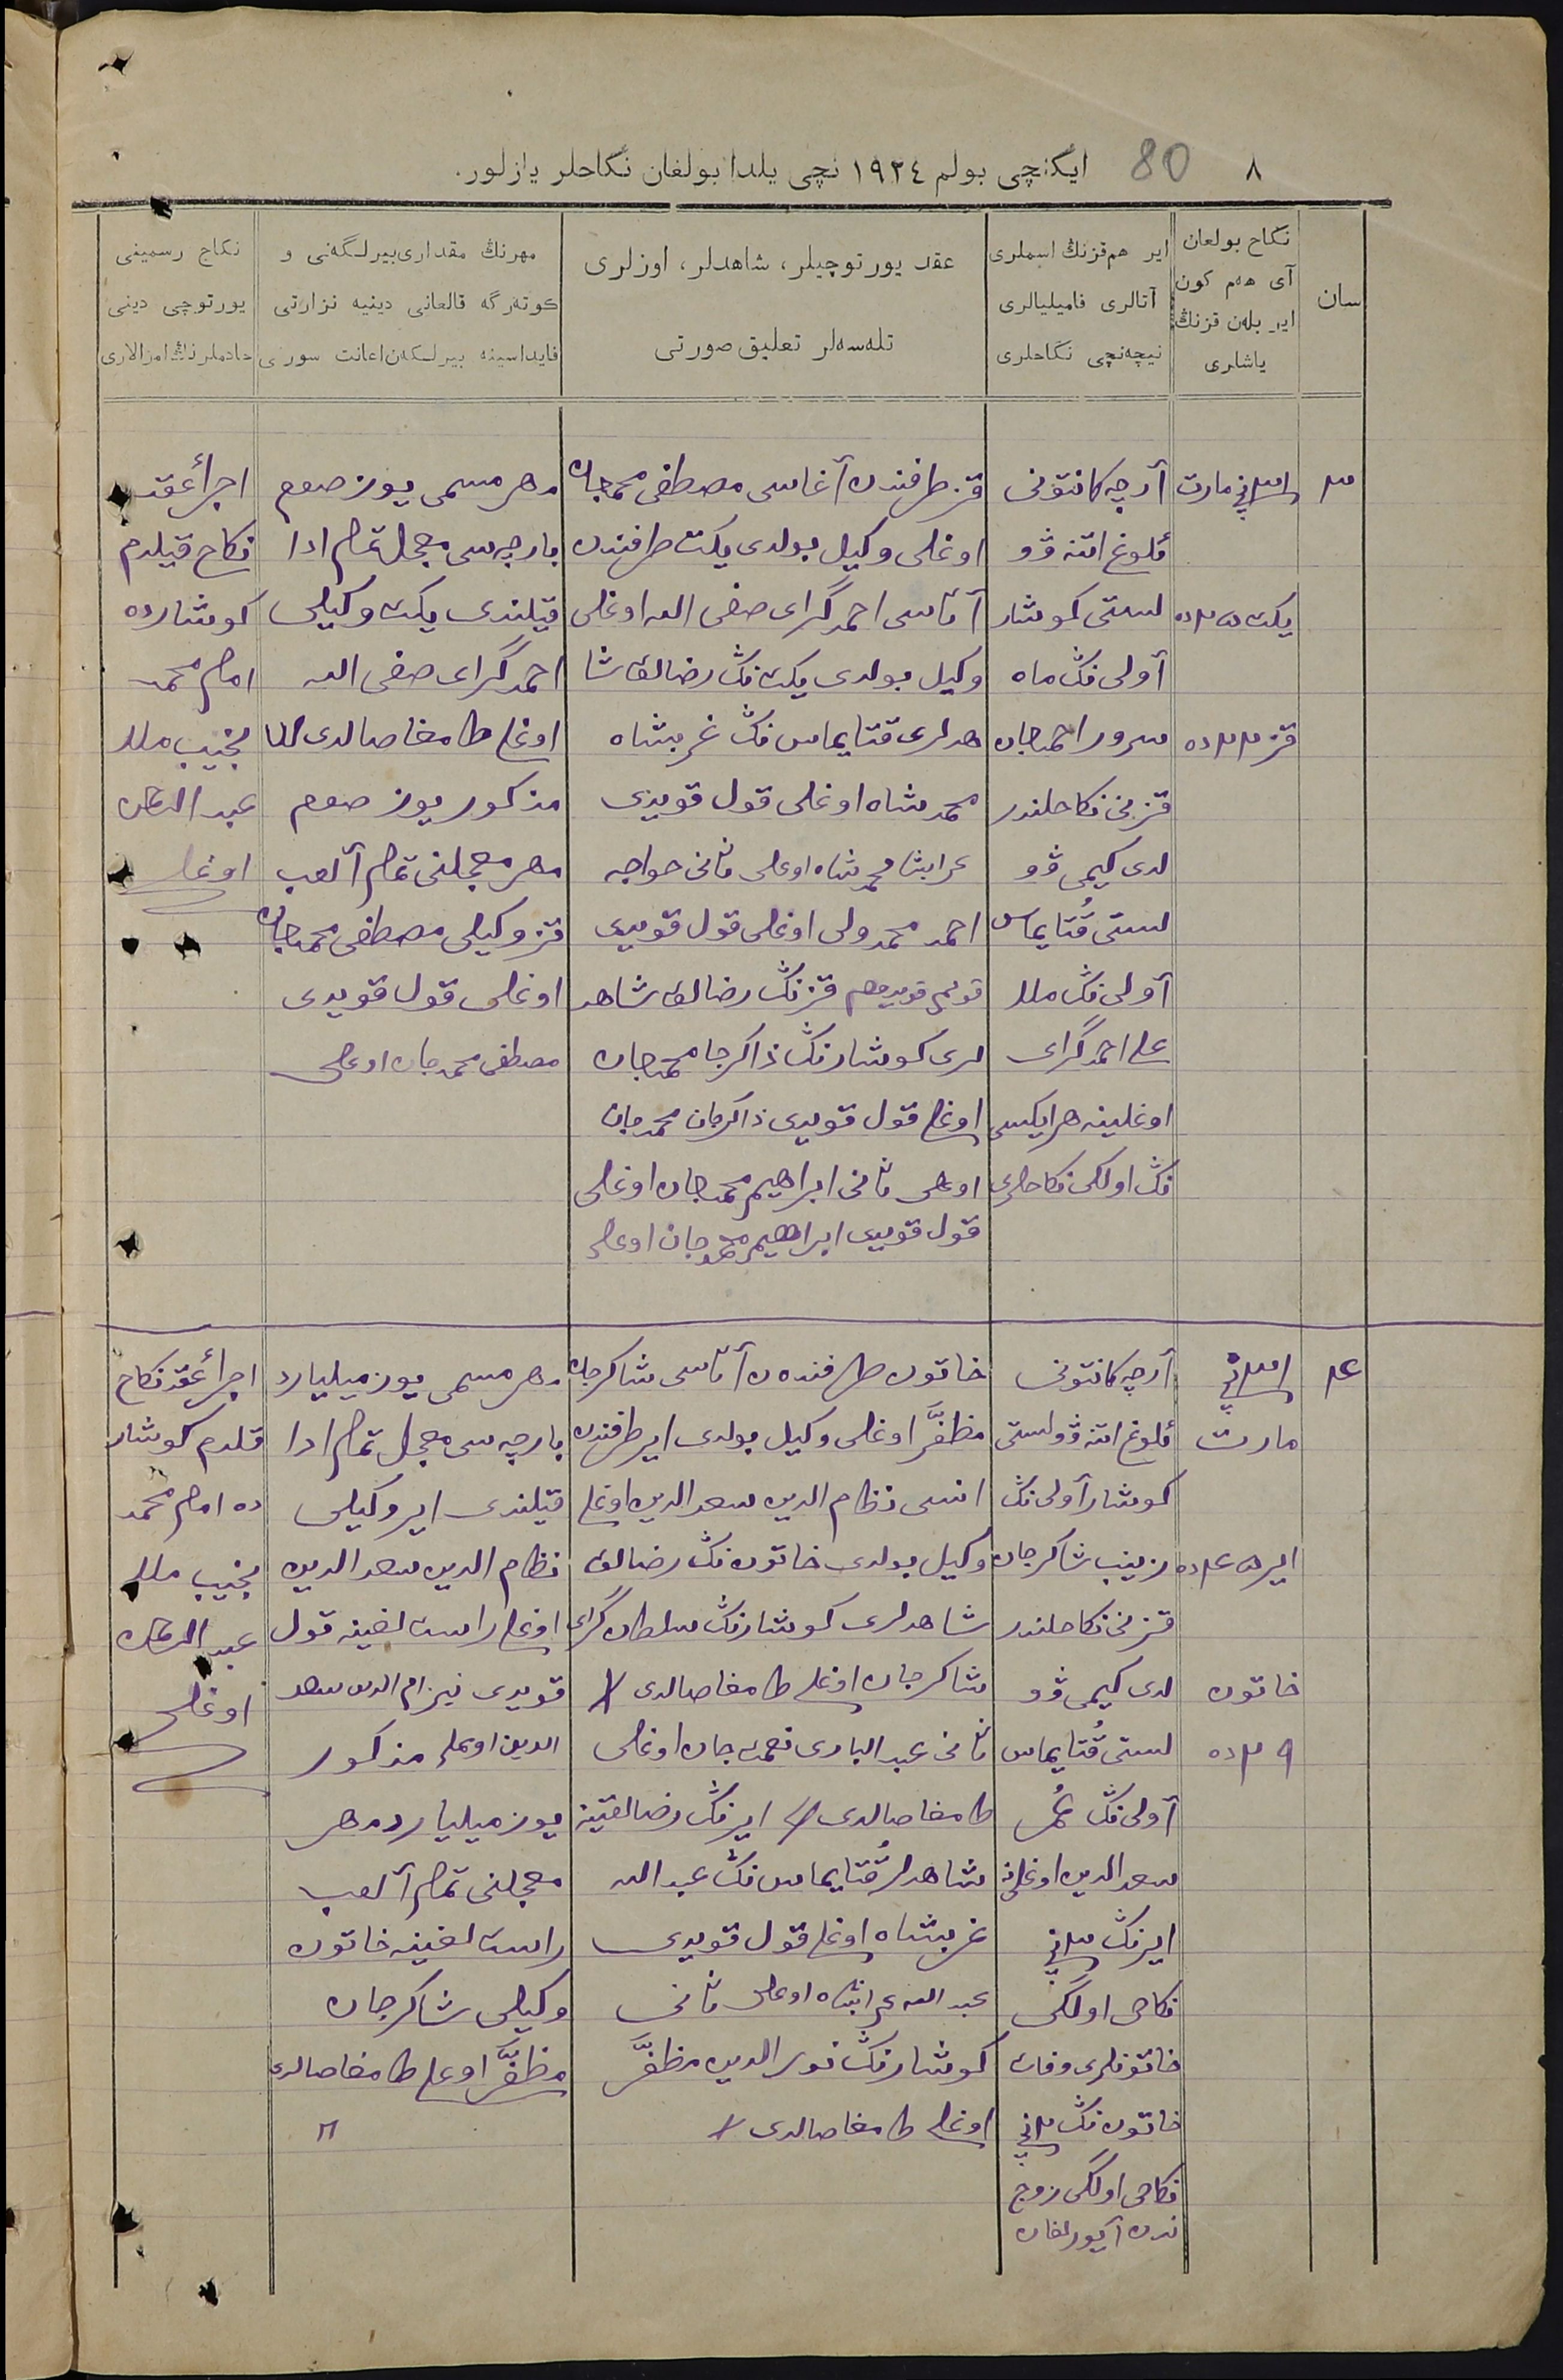 ٨ 80 ایکنچی بولم ١٩٢٤ نچی یلدا بولغان نکاحلر یازلور.
سان
نکاح بولغان
آی هەم کون
ایر بلەن قزنڭ
یاشلری
ایر هم قزنڭ اسملری
آتالری فامیلیالری
نیچەنچی نکاحلری
عقد یورتوچیلر، شاهدلر، اوزلری
تلەسەلر تعلیق صورتی
مهرنڭ مقداری بیرلگەنی و
کوتەرگە قالغانی دینیە نزارتی
فایداسینە بیرلگەن اعانت سوزی
نکاح رسمینی
یورتوچی دینی
خادملرنڭ امزالاری
٣
مارت
یکت
قز
آرچه کانتونی
ئلوغ اتنه ڤو
لستی کوشار
آولی نڭ ماه
سرور احمدجان
قزینی نکاحلندر
لدی کیمی ڤو
لستی قُتایماس
آولی نڭ ملا
علی احمدگرای
اوغلینه هر ایکسی
نڭ اولکی نکاحلری
قز طرفندن آغاسی مصطفی محمدجان
اوغلی وکیل بولدی یکت طرفندن
آتاسی احمدگرای صفی الله اوغلی
وکیل بولدی یکت نڭ رضالق شا
هدلری قتایماس نڭ غربشاه
محمدشاه اوغلی قول قویدی
محمدشاه اوغلی ثانی خواجه
احمد محمدولی اوغلی قول قویدی
قزنڭ رضالق شاهد
لری کوشارنڭ ذاکرجان محمدجان
اوغلی قول قویدی ذاکرجان محمدجان
اوغلی ثانی ابراهیم محمدجان اوغلی
قول قویدی ابراهیم محمدجان اوغلی
مهر مسمی یوز صوم
بارچەسی معجل تمام ادا
قیلندی یکت وکیلی
احمدگرای صفی الله
اوغلی طامغا صالدی
مذکور یوز صوم
مهر معجلنی تمام آلعب
قز وکیلی مصطفی محمدجان
اوغلی قول قویدی
مصطفی محمدجان اوغلی
اجرأ عقد
نکاح قیلدم
کوشارده
امام محمد
نجیب ملا
عبد الرحمان
اوغلی
٤
مارت
ایر
خاتون
آرچه کانتونی
ئلوغ اتنه ڤولستی
کوشار آولی نڭ
زینب شاکرجان
قزینی نکاحلندر
لدی کیمی ڤو
لستی قُتایماس
آولی نڭ
سعدالدین اوغلینه
ایرنڭ
نکاحی اولکی
خاتونلری وفات
خاتون نڭ
نکاحی اولکی زوج
ندن آیورلغان
خاتون طرفندن آتاسی شاکرجان
مظفَّر اوغلی وکیل بولدی ایر طرفندن
انسی نظام الدین سعدالدین اوغلی
وکیل بولدی خاتون نڭ رضالق
شاهدلری کوشارنڭ سلطان گرای
شاکرجان اوغلی طامغا صالدی
ثانی عبد الباری نعمت جان اوغلی
طامغا صالدی ایرنڭ رضالقینه
شاهدلر قُتایماس نڭ عبد الله
غربشاه اوغلی قول قویدی
عبد الله اوغلی ثانی
کوشارنڭ نورالدین مظفَّر
اوغلی طامغا صالدی
مهر مسمی یوز میلیارد
بارچەسی معجل تمام ادا
قیلندی ایر وکیلی
نظام الدین سعدالدین
اوغلی راست لغینه قول
قویدی نیزام الدین سعد
الدین اوغلی مذکور
یوز میلیارد مهر
معجلنی تمام آلعب
راست لغینه خاتون
وکیلی شاکرجان
مظفَّر اوغلی طامغا صالدی
اجرأ عقد نکاح
قلدم کوشار
ده امام محمد
نجیب ملا
عبد الرحمان
اوغلی